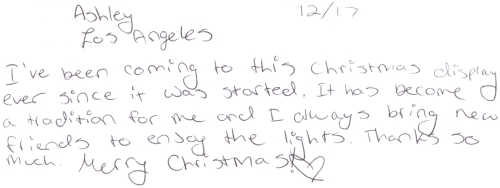 Ashley 12/17
Los Angeles
I've been coming to this Christmas display
ever since it was started. It has become
a tradition for me and I always bring new
friends to enjoy the lights. Thanks so
much. Merry Christmas!